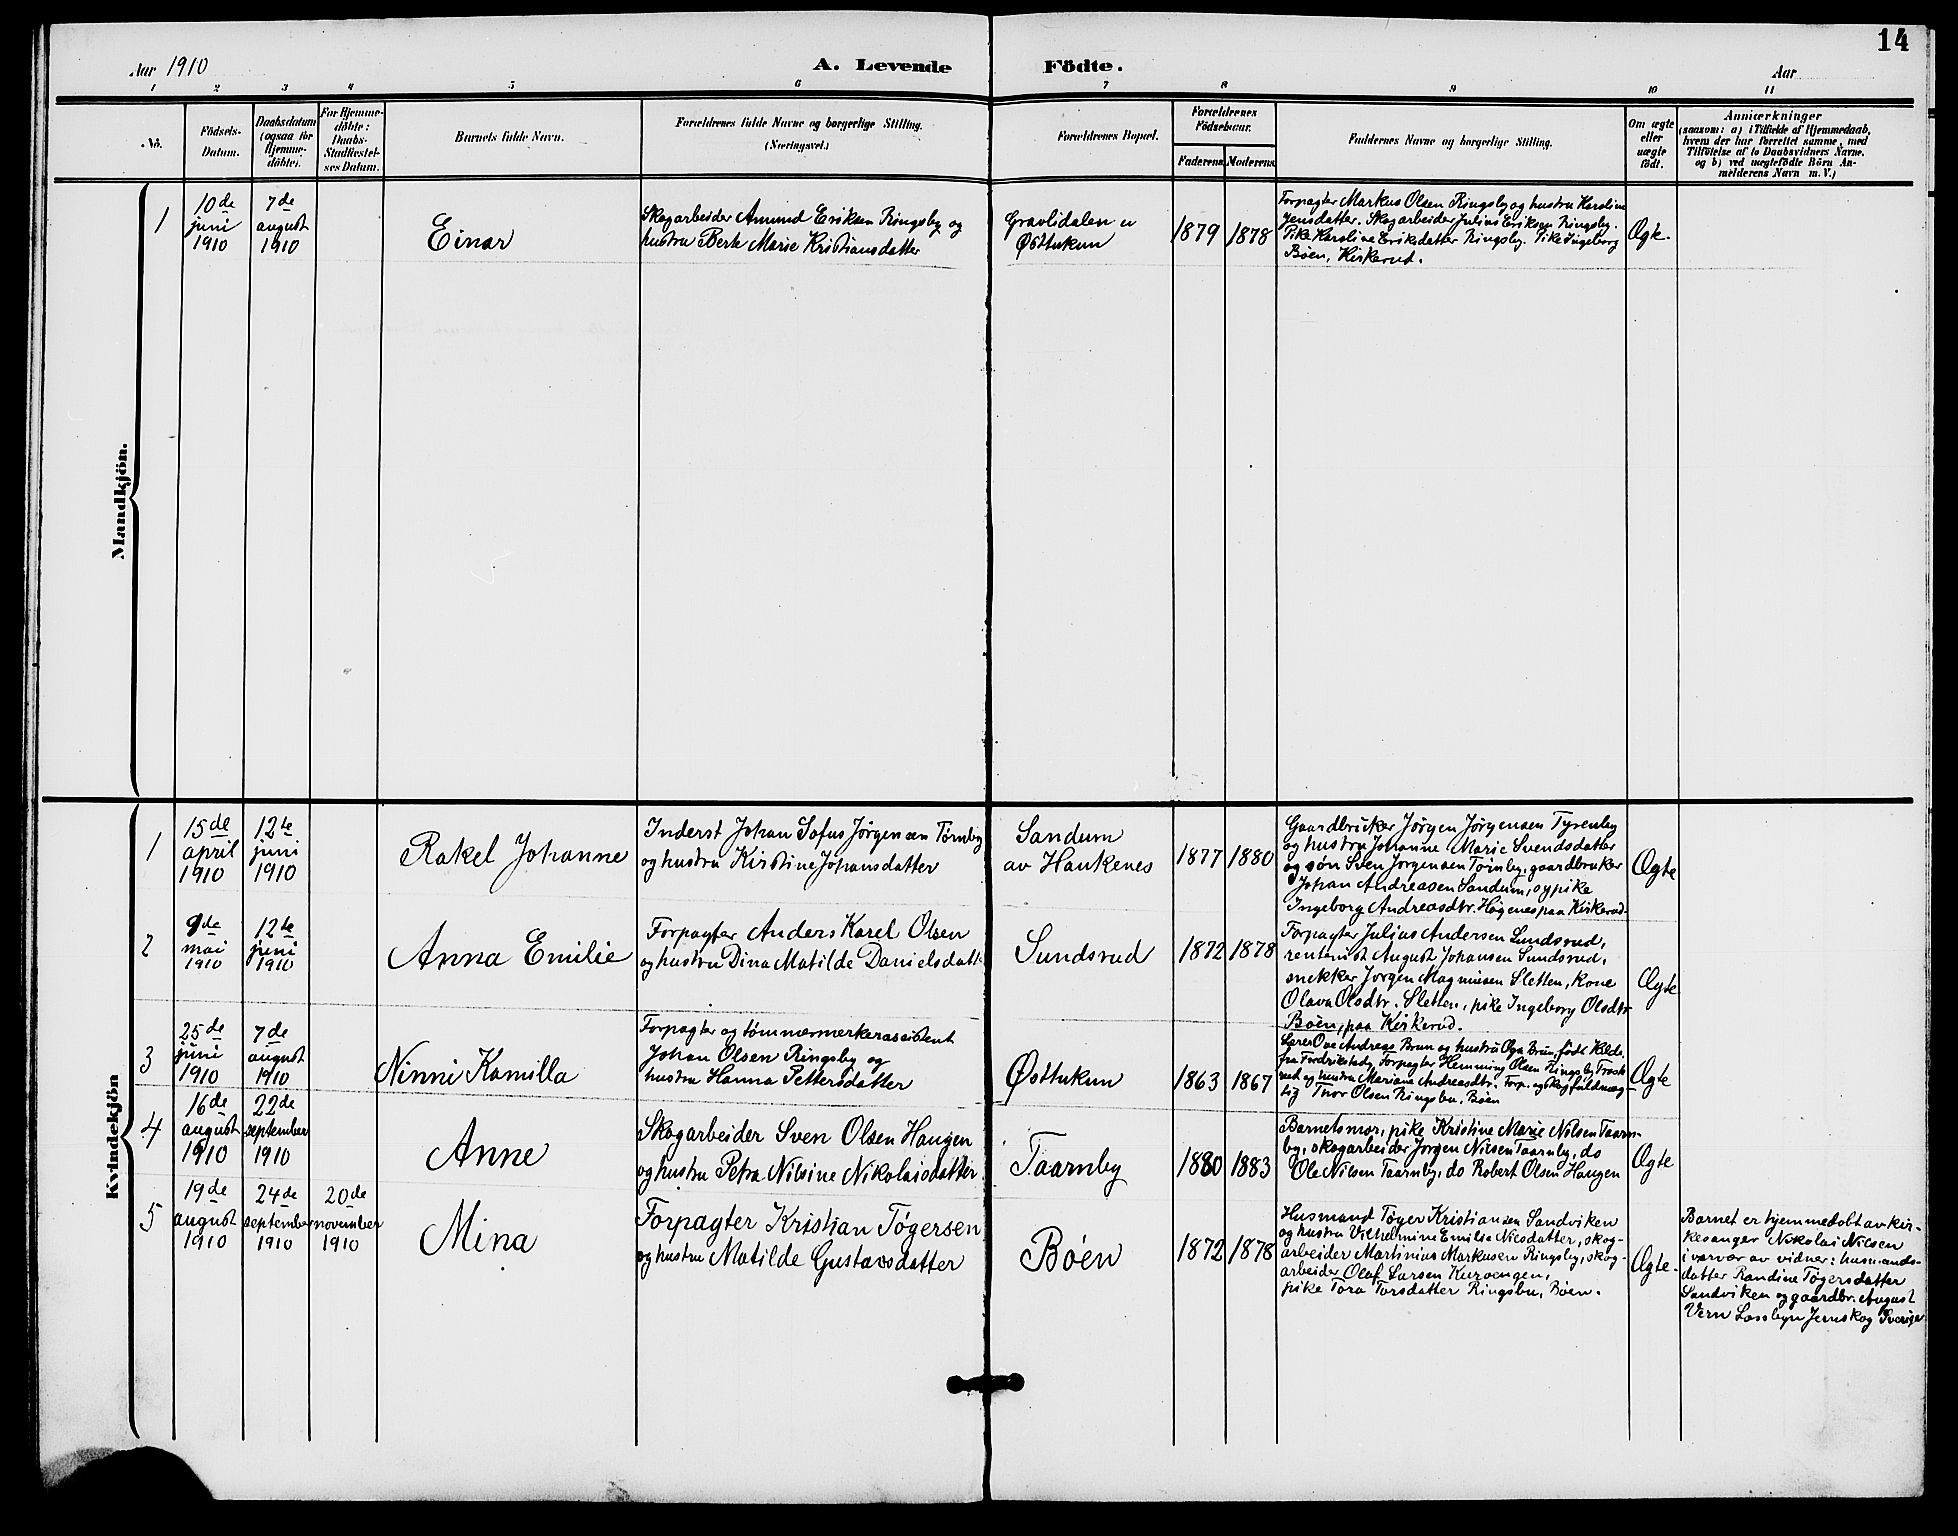 14
Aar 1910
A. Levende Födte.
Aar
1 2 3 4 5 6 7 8 9 10 11
No.
Födsels-
Datum.
Daabsdatum
(ogsaa for
Hjemme-
döbte).
For Hjemme-
döbte:
Daabs-
Stadfæstel-
ses Datum.
Barnets fulde Navn.
Forældrenes fulde Navne og borgerlige Stilling.
(Næringsvei.)
Forældrenes Bopæl.
Forældrenes
Födselsaar.
Faderens Moderens
Faddernes Navne og borgerlige Stilling.
Om ægte
eller
uægte
födt.
Anmærkninger
(saasom: a) i Tilfælde af Hjemmedaab,
hvem der har forrettet samme, med
Tilföielse af to Daabsvidners Navne,
og b) ved uægtefödte Börn An-
melderens Navn m. V.)
Mandkjön.
1
10de
juni
1910
7de
august
1910
Einar
Skogarbeider Amund Eriksen Ringsby og
hustru Berte Marie Kristiansdatter
Gravlidalen u
Østtukun
1879
1878
Forpagter Markus Olsen Ringsby og hustru Karoline
Jensdatter. Skogarbeider Julius Eriksen Ringsby.
Pike Karoline Eriksdatter Ringsby. Pike Ingeborg
Bøen, Kirkerud.
Ægte.
Kvindekjön
1
15de
april
1910
12te
juni
1910
Rakel Johanne
Inderst Johan Sofus Jørgensen Tørnby
og hustru Kirstine Johansdatter
Sandum
av Haukenes
1877
1880
Gaardbruker Jørgen Jørgensen Tyrenby
og hustru Johanne Marie Svendsdatter
og søn Sven Jørgensen Tørnby, gaardbruker
Johan Andreasen Sandum, sypike
Ingeborg Andreasdtr. Høgenes paa Kirkerud.
Ægte
2
9de
mai
1910
12te
juni
1910
Anna Emilie
Forpagter Anders Karel Olsen
og hustru Dina Matilde Danielsdatt
Sundsrud
1872
1878
Forpagter Julius Andersen Sundsrud,
rentenist August Johansen Sundsrud,
snekker Jørgen Magnusen Sletten, kone
Olava Olsdtr. Sletten, pike Ingeborg Olsdtr
Bøen, paa Kirkerud.
Ægte
3
25de
juni
1910
7de
august
1910
Ninni Kamilla
Forpagter og tømmermerkerassistent
Johan Olsen Ringsby og
hustru Hanna Pettersdatter
Østtukun
1863
1867
Lærer Ove Andreas Brun og hustru Olga Brun, født Hilde,
fra Fredrikstad, Forpagter Hemming Olsen Ringsby
og hustru Mariane Andreasdtr. Forp. og skogfuldmæg-
tig Thor Olsen Ringsbu, Bøen
Ægte
4
16de
august
1910
22de
september
1910
Anne
Skogarbeider Sven Olsen Haugen
og hustru Petra Nilsine Nikolaisdatter.
Taarnby
1880
1883
Barnets mor, pike Kristine Marie Nilsen Taarn-
by, skogarbeider Jørgen Nilsen Taarnby, do
Ole Nilsen Taarnby, do Robert Olsen Haugen
Ægte
5
19de
august
1910
24de
september
1910
20de
november
1910
Mina
Forpagter Kristian Tøgersen
og hustru Matilde Gustavsdatter
Bøen
1872
1878
Husmand Tøger Kristiansen Sandviken
og hustru Vilhelmine Emilie Nilsdatter, skog-
arbeider Martinius Markusen Ringsby, skog-
arbeider Olaf Larsen Kurvengen,
pike Tora Torsdatter Ringsbu, Bøen.
Ægte.
Barnet er hjemmedøbt av kir-
kesanger Nikolai Nilsen
i nærvær av vidner: husmands-
datter Randine Tøgersdatter
Sandviken og gaardbr. August
Vern Lossbyn Jernskog Sverige